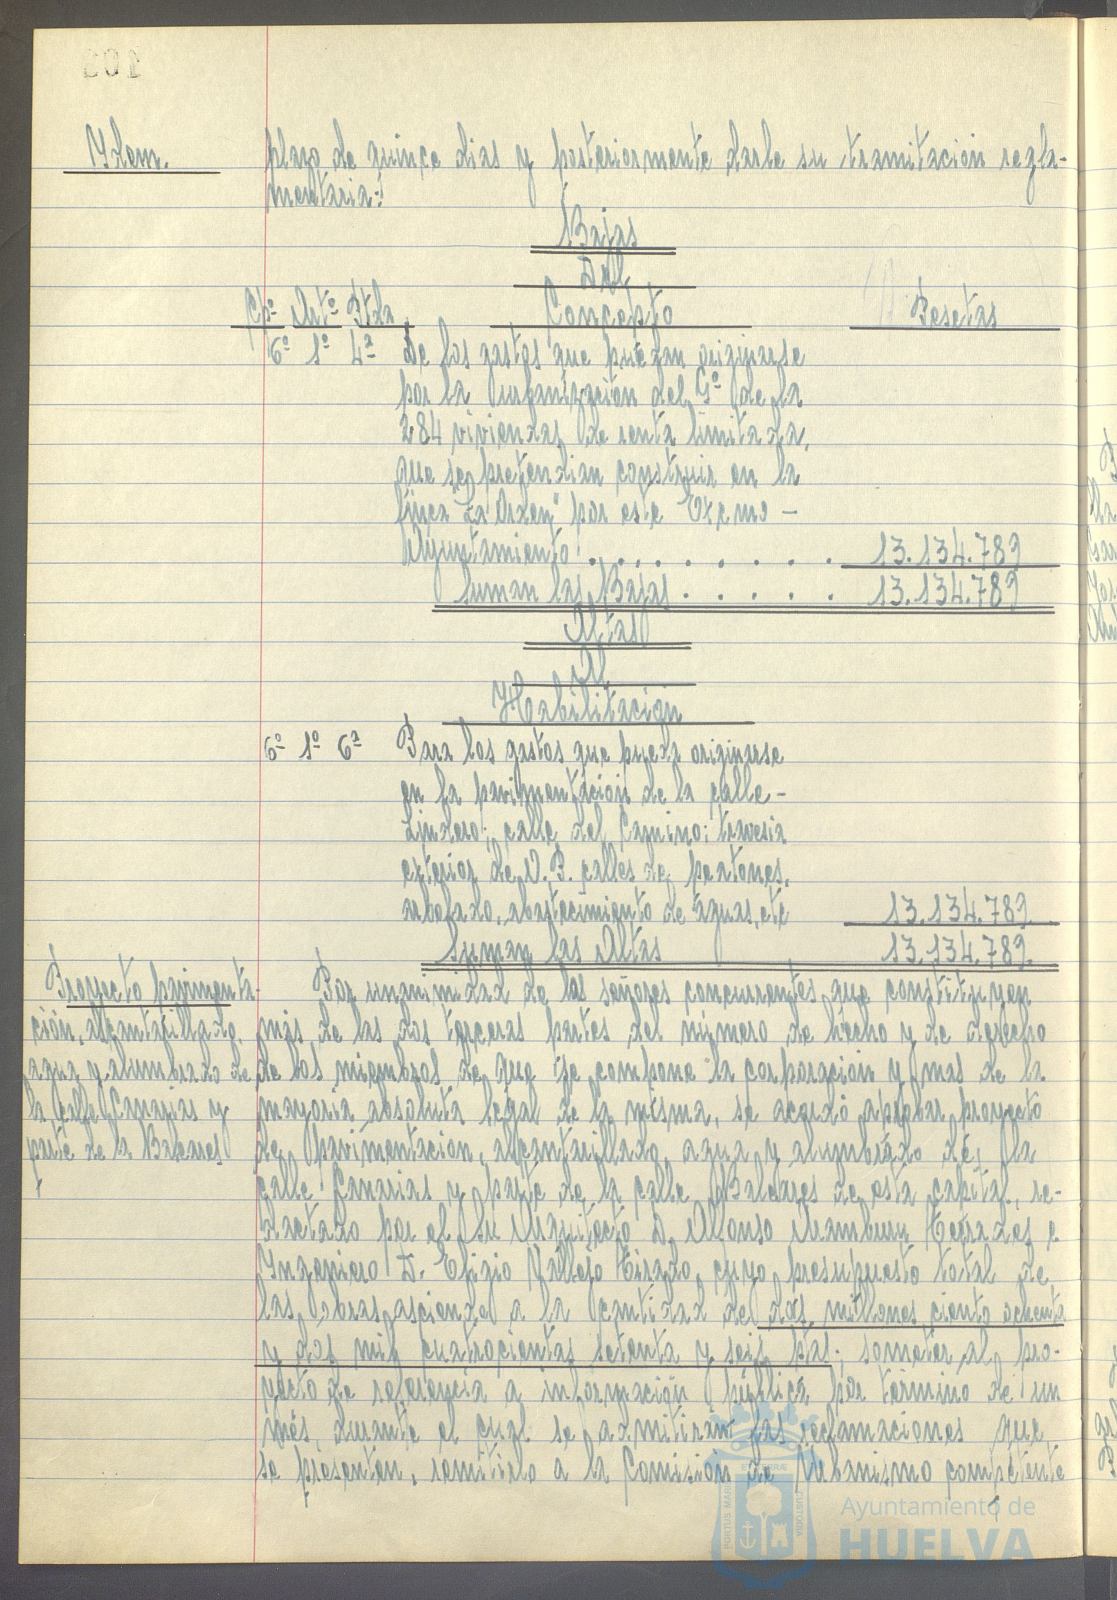 Ydem.
plazo de quince dias y posteriormente darle su tramitación regla-
mentaria:
Bajas
Del
Cpº Artº Ptda Concepto Pesetas
6º 1º 4ª De los gastos que puedan originarse
por la urbanización del Gº de la
284 viviendas de renta limitada,
que se pretendian construir en la
finca "La Orden" por este Excmo -
Ayuntamiento . . . . . . . . . 13.134.789
Suman las Bajas . . . . . 13.134.789
Altas
Al
Habilitación
6º 1º 6ª Para los gastos que pueda originarse
en la pavimentación de la calle -
Lindero; calle del Camino; travesia
exterior de V.P. calles de peatones,
arbolado, abastecimiento de aguas, etc 13.134.789.
Suman las Altas 13.134.789.
Proyecto pavimenta-
ción, alcantarillado,
agua y alumbrado de
la calle Canarias y
parte de la Baleares
Por unanimidad de los señores concurrentes que constituyen
más de las dos terceras partes del número de hecho y de derecho
de los miembros de que se compone la corporación y mas de la
mayoria absoluta legal de la misma, se acordó aprobar proyecto
de pavimentación, alcantarillado, agua y alumbrado de la
calle Canarias y parte de la calle Baleares de esta capital, re-
dactado por el Sr Arquitecto D. Alfonso Aramburu Terrades e
Yngeniero D. Eligio Vallejo Tirado, cuyo presupuesto total de
las obras asciende a la cantidad de dos millones ciento ochenta
y dos mil cuatrocientas setenta y seis ptas; someter al pro-
yecto de referencia a información pública por término de un
mes, durante el cual se admitirán las reclamaciones que
se presenten, remitirlo a la Comisión de Urbanismo competente
Ayuntamiento de
HUELVA
PORTUS MARIS
ET TERRÆ
CUSTODIA